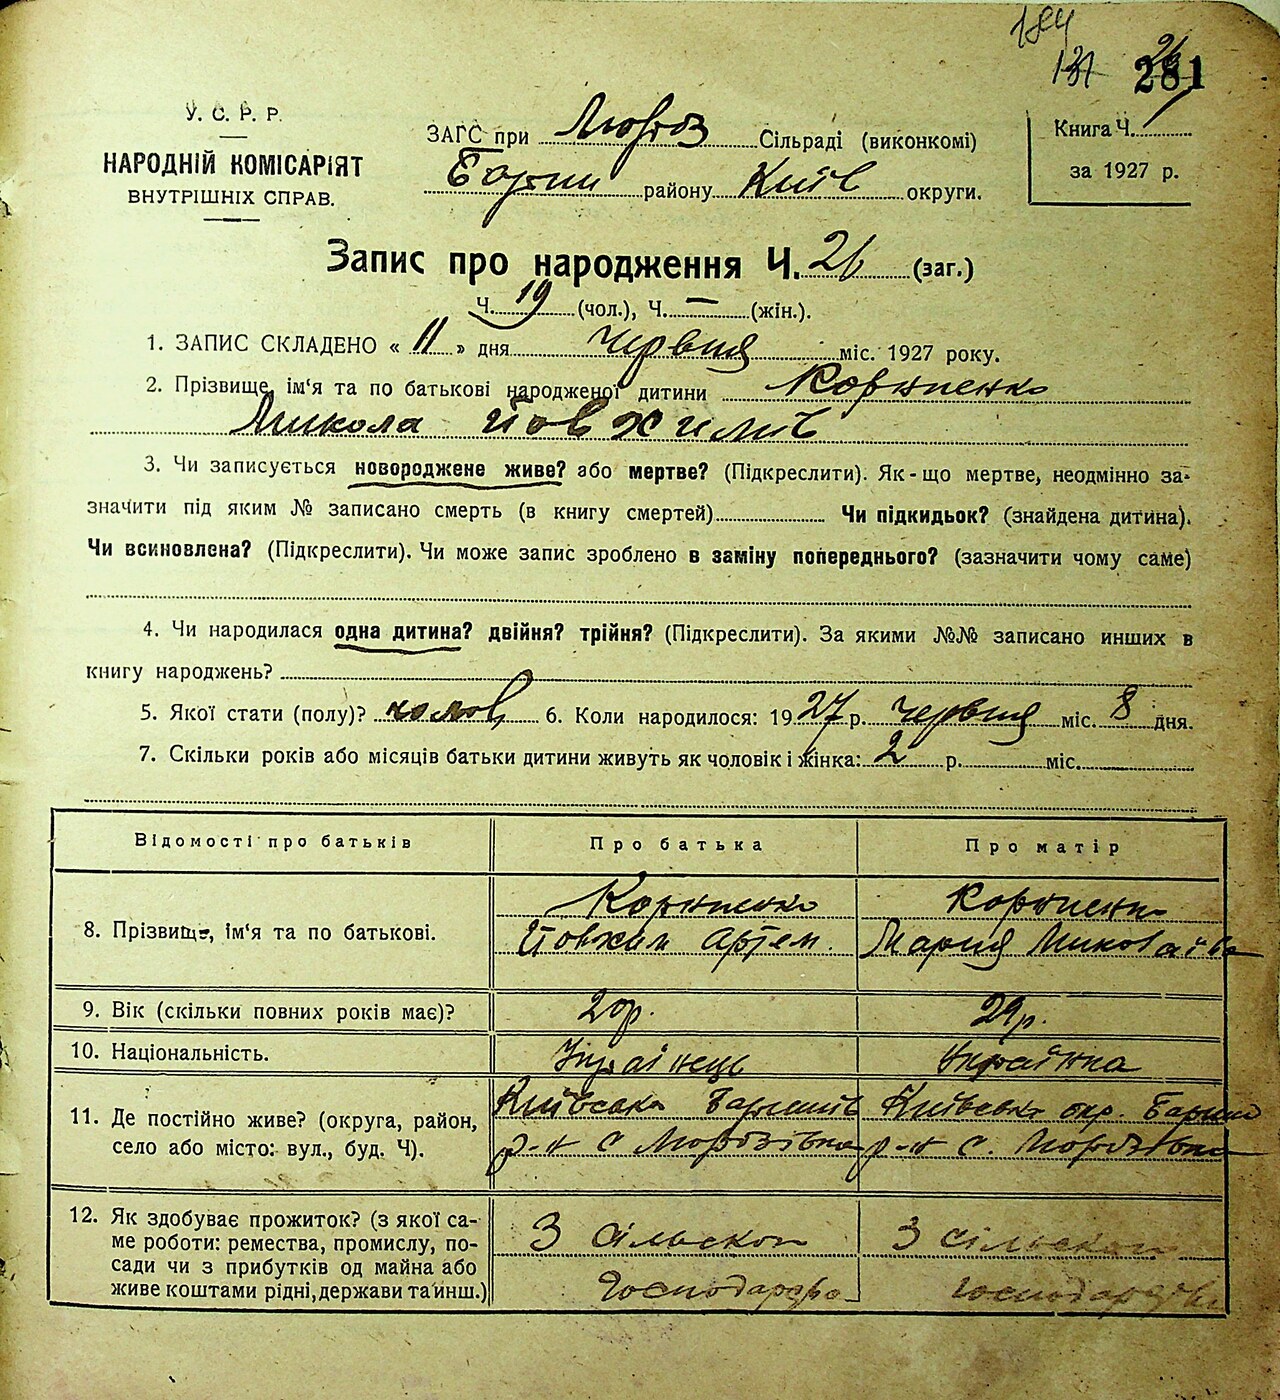 281
У. С. Р. Р.
НАРОДНІЙ КОМІСАРІЯТ
ВНУТРІШНІХ СПРАВ.
ЗАГС при Морозів Сільраді (виконкомі)
району Київ округи.
Книга Ч.
за 1927 р.
Запис про народження Ч. 26 (заг.)
Ч. 19 (чол.), Ч. — (жін.).
1. ЗАПИС СКЛАДЕНО « 11 » дня червня міс. 1927 року.
2. Прізвище, ім'я та по батькові народженої дитини
Микола Йовхимів
3. Чи записується новороджене живе? або мертве? (Підкреслити). Як-що мертве, неодмінно за-
значити під яким № записано смерть (в книгу смертей) Чи підкидьок? (знайдена дитина).
Чи всиновлена? (Підкреслити). Чи може запис зроблено в заміну попереднього? (зазначити чому саме)
4. Чи народилася одна дитина? двійня? трійня? (Підкреслити). За якими №№ записано инших в
книгу народжень?
5. Якої стати (полу)? чолов 6. Коли народилося: 1927 р. червня міс. 8 дня.
7. Скільки років або місяців батьки дитини живуть як чоловік і жінка: 2 р. міс.
Відомості про батьків Про батька Про матір
8. Прізвище, ім'я та по батькові.
Йовхим Артем. Мария Миколаївна
9. Вік (скільки повних років має)? 20р. 29р.
10. Національність. Українець Українка
11. Де постійно живе? (округа, район,
село або місто: вул., буд. Ч).
Київська Баришів Київська окр. Бариш
р-н с Морозівка р-н с. Морозівка
12. Як здобуває прожиток? (з якої са-
ме роботи: ремества, промислу, по-
сади чи з прибутків од майна або
живе коштами рідні, держави та инш.)
З сільского З сільского
господарства господарства